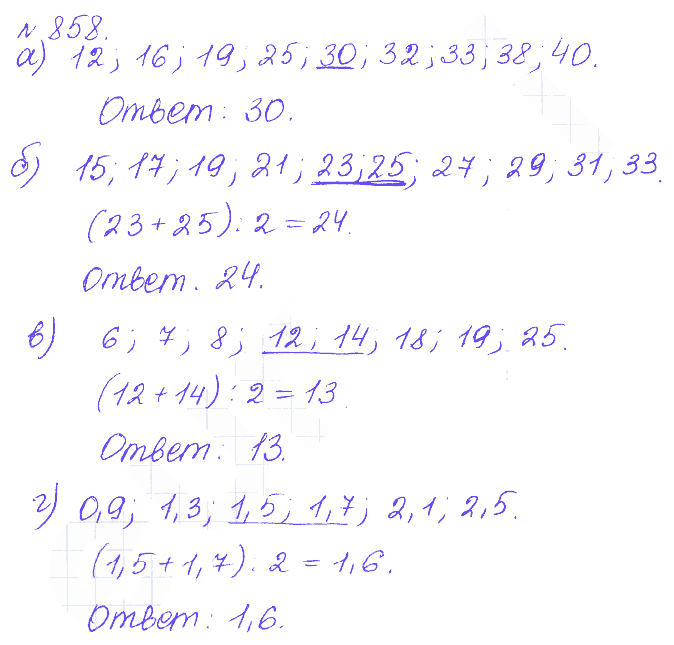 № 858.
а) 12; 16; 19; 25; 30; 32; 33; 38; 40.
Ответ: 30.
б) 15; 17; 19; 21; 23; 25; 27; 29; 31; 33.
(23+25):2=24.
Ответ. 24.
в) 6; 7; 8; 12; 14; 18; 19; 25.
(12+14):2=13
Ответ: 13.
г) 0,9; 1,3; 1,5; 1,7; 2,1; 2,5.
(1,5+1,7):2=1,6.
Ответ: 1,6.